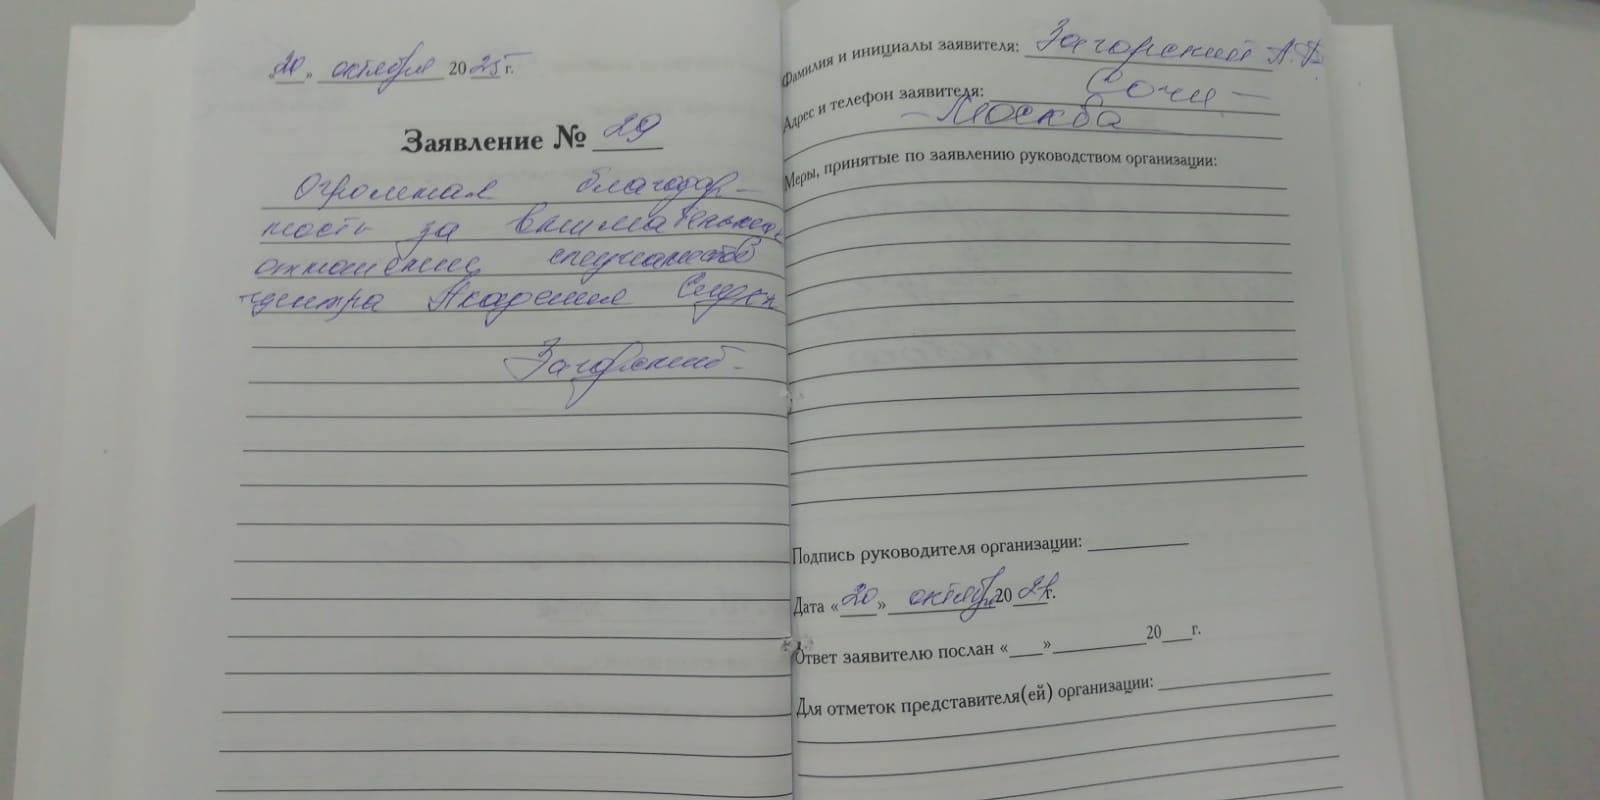 «20» октября 2025 г.
Заявление № 29
Огромная благодар-
ность за внимательное
отношение специалистов
центра Академия Слуха
Загорский
Фамилия и инициалы заявителя: Загорский А.
Адрес и телефон заявителя: Сочи –
– Москва
Меры, принятые по заявлению руководством организации:
Подпись руководителя организации:
Дата «20» октября 20 г.
Ответ заявителю послан «___»________20___г.
Для отметок представителя(ей) организации: